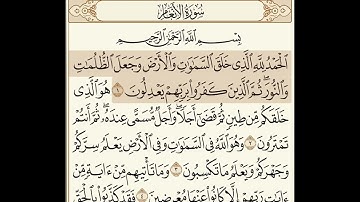 سُورَةُ الأَنْعَامِ
بِسْمِ اللَّهِ الرَّحْمَٰنِ الرَّحِيمِ
الْحَمْدُ لِلَّهِ الَّذِي خَلَقَ السَّمَاوَاتِ وَالْأَرْضَ وَجَعَلَ الظُّلُمَاتِ
وَالنُّورَ ۖ ثُمَّ الَّذِينَ كَفَرُوا بِرَبِّهِمْ يَعْدِلُونَ ١ هُوَ الَّذِي
خَلَقَكُم مِّن طِينٍ ثُمَّ قَضَىٰ أَجَلًا ۖ وَأَجَلٌ مُّسَمًّى عِندَهُ ۖ ثُمَّ أَنتُمْ
تَمْتَرُونَ ٢ وَهُوَ اللَّهُ فِي السَّمَاوَاتِ وَفِي الْأَرْضِ يَعْلَمُ سِرَّكُمْ
وَجَهْرَكُمْ وَيَعْلَمُ مَا تَكْسِبُونَ ٣ وَمَا تَأْتِيهِم مِّنْ ءَايَةٍ مِّنْ
ءَايَاتِ رَبِّهِمْ إِلَّا كَانُوا عَنْهَا مُعْرِضِينَ ٤ فَقَدْ كَذَّبُوا بِالْحَقِّ